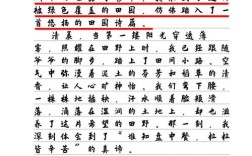 被绿色覆盖的田园，仿佛踏入了一
首悠扬的田园诗篇。
清晨，当第一缕阳光穿透薄
雾，照耀在田野上时，我已经跟随
爷爷的脚步，踏上了田间小路。空
气中弥漫着泥土的芬芳和稻草的清
香，让人心旷神怡。我们弯下腰，
一株株地插秧，汗水顺着脸颊滑
落，滴落在湿润的土地上，也滋养
了这片希望的田野。那一刻，我
深刻体会到了“谁知盘中餐，粒粒
皆辛苦”的真谛。